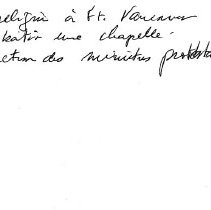 religion à Ft. Vancouver
batir une chapelle.
ction des ministres protesta